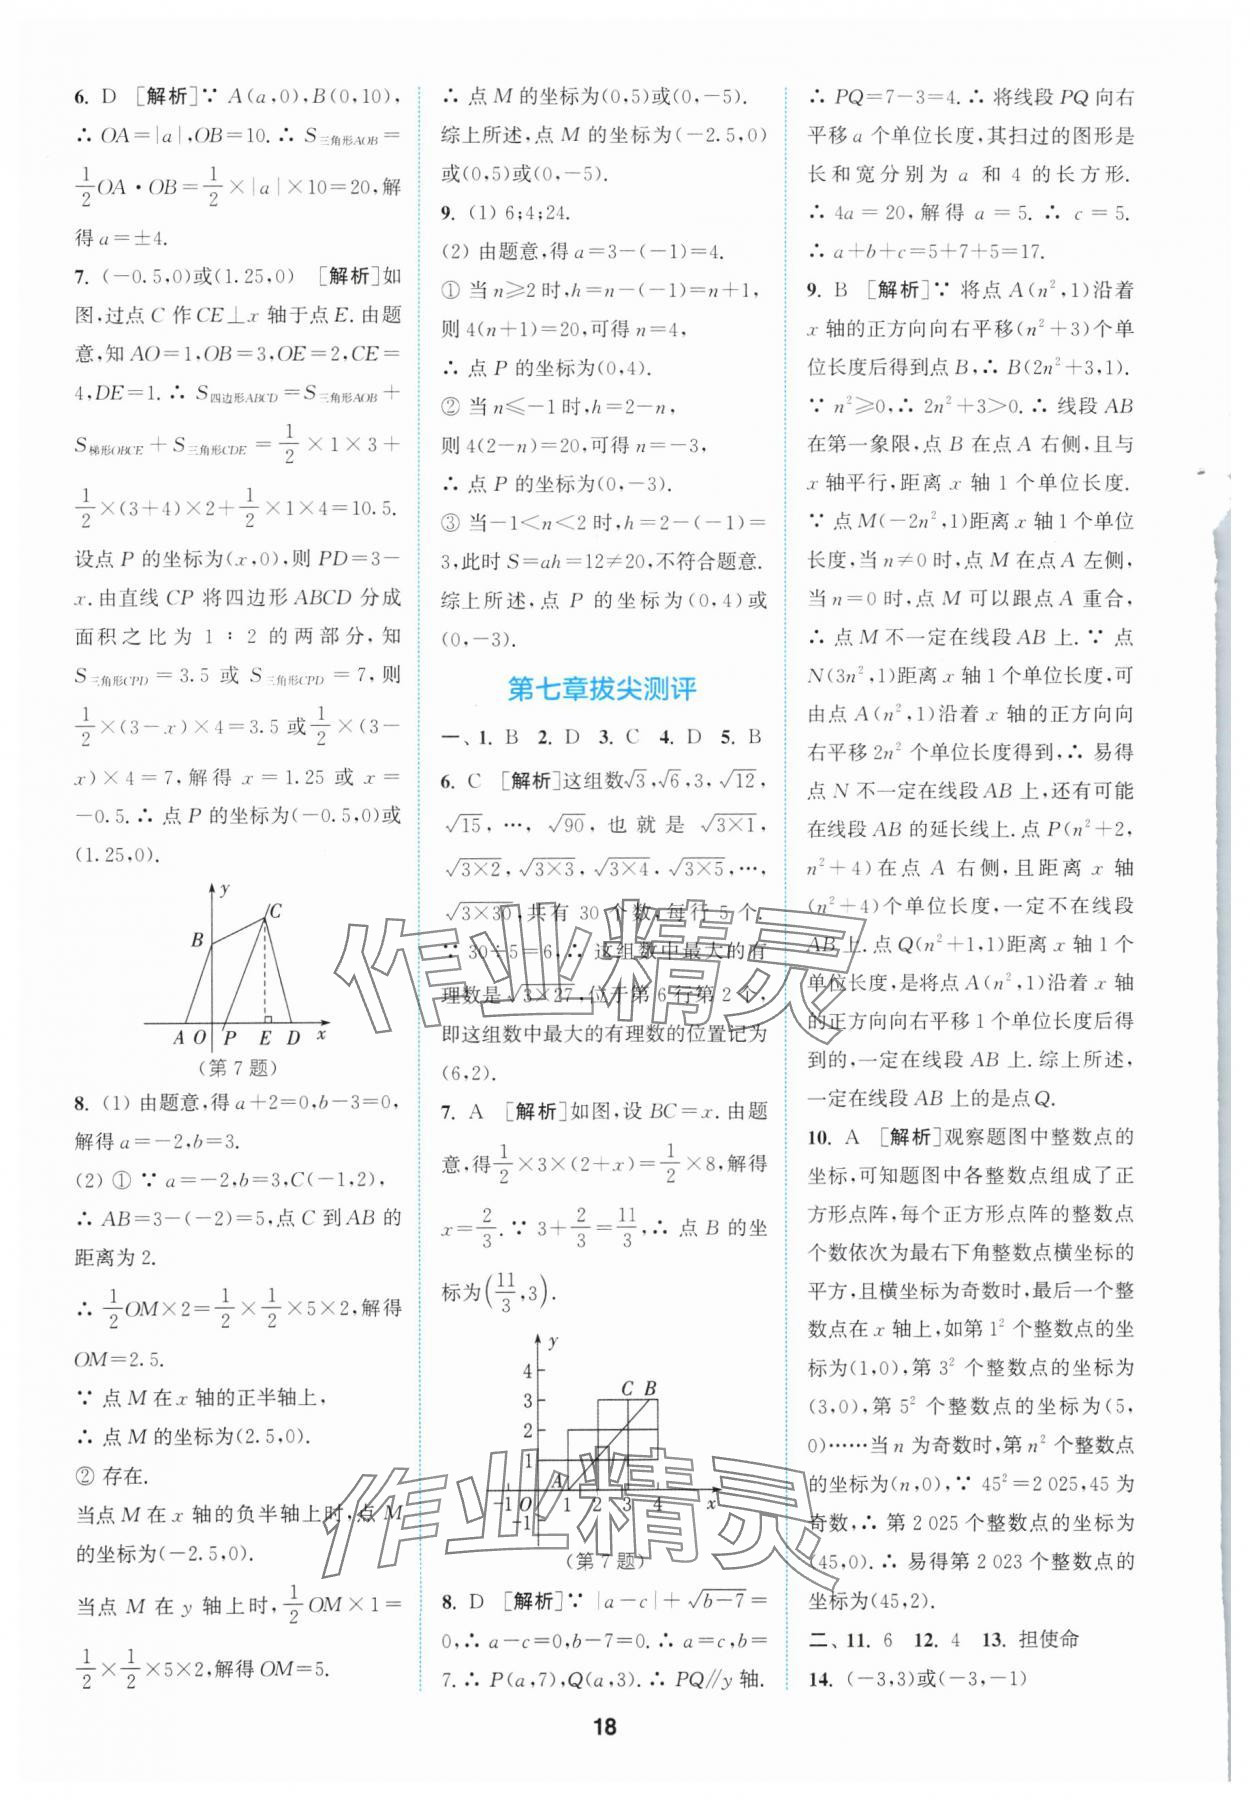 6. D [解析]∵ A(a,0),B(0,10),
∴ OA=|a|,OB=10.∴ S三角形AOB=
1/2 OA·OB=1/2×|a|×10=20,解
得a=±4.
7. (-0.5,0)或(1.25,0) [解析]如
图,过点 C 作CE⊥x 轴于点E. 由题
意,知 AO=1,OB=3,OE=2,CE=
4,DE=1.∴ S四边形ABCD=S三角形AOB+
S梯形OBCE+S三角形CDE=1/2×1×3+
1/2×(3+4)×2+1/2×1×4=10.5.
设点 P 的坐标为(x,0),则 PD=3-
x. 由直线 CP 将四边形 ABCD 分成
面积之比为 1∶2 的两部分,知
S三角形CPD=3.5 或 S三角形CPD=7,则
1/2×(3-x)×4=3.5 或1/2×(3-
x)×4=7,解得 x=1.25 或 x=
-0.5.∴ 点 P 的坐标为(-0.5,0)或
(1.25,0).
y
C
B
A O P E D x
(第 7 题)
8. (1) 由题意,得 a+2=0,b-3=0,
解得a=-2,b=3.
(2) ① ∵ a=-2,b=3,C(-1,2),
∴ AB=3-(-2)=5,点 C 到AB 的
距离为 2.
∴ 1/2 OM×2=1/2×1/2×5×2,解得
OM=2.5.
∵ 点 M 在 x 轴的正半轴上,
∴ 点 M 的坐标为(2.5,0).
② 存在.
当点 M 在 x 轴的负半轴上时,点 M
的坐标为(-2.5,0).
当点 M 在 y 轴上时,1/2 OM×1=
1/2×1/2×5×2,解得OM=5.
∴ 点 M 的坐标为(0,5)或(0,-5).
综上所述,点 M 的坐标为(-2.5,0)
或(0,5)或(0,-5).
9. (1) 6;4;24.
(2) 由题意,得a=3-(-1)=4.
① 当n≥2时,h=n-(-1)=n+1,
则 4(n+1)=20,可得 n=4,
∴ 点 P 的坐标为(0,4).
② 当 n≤-1时,h=2-n,
则 4(2-n)=20,可得 n=-3,
∴ 点 P 的坐标为(0,-3).
③ 当-1<n<2 时,h=2-(-1)=
3,此时 S=ah=12≠20,不符合题意.
综上所述,点 P 的坐标为(0,4)或
(0,-3).
第七章拔尖测评
一、1. B 2. D 3. C 4. D 5. B
6. C [解析]这组数√3,√6,3,√12,
√15,…,√90,也就是 √3×1,
√3×2,√3×3,√3×4,√3×5,…,
√3×30,共有 30 个数,每行 5 个.
∵ 30÷5=6,∴ 这组数中最大的有
理数是√3×27,位于第 6 行第 2 个,
即这组数中最大的有理数的位置记为
(6,2).
7. A [解析]如图,设 BC=x. 由题
意,得1/2×3×(2+x)=1/2×8,解得
x=2/3.∵ 3+2/3=11/3,∴ 点 B 的坐
标为(11/3,3).
y
4
3 C B
2
1
A
-1 O 1 2 3 4 x
-1
(第 7 题)
8. D [解析]∵ |a-c|+√b-7=
0,∴ a-c=0,b-7=0.∴ a=c,b=
7.∴ P(a,7),Q(a,3).∴ PQ∥y 轴.
∴ PQ=7-3=4.∴ 将线段 PQ 向右
平移 a 个单位长度,其扫过的图形是
长和宽分别为 a 和 4 的长方形.
∴ 4a=20,解得 a=5.∴ c=5.
∴ a+b+c=5+7+5=17.
9. B [解析]∵ 将点 A(n²,1)沿着
x 轴的正方向向右平移(n²+3)个单
位长度后得到点 B,∴ B(2n²+3,1).
∵ n²≥0,∴ 2n²+3>0.∴ 线段 AB
在第一象限,点 B 在点 A 右侧,且与
x 轴平行,距离 x 轴 1 个单位长度.
∵ 点M(-2n²,1)距离x 轴1个单位
长度,当n≠0时,点 M 在点 A 左侧,
当 n=0 时,点 M 可以跟点 A 重合,
∴ 点 M 不一定在线段 AB 上.∵ 点
N(3n²,1)距离 x 轴 1 个单位长度,可
由点 A(n²,1)沿着 x 轴的正方向向
右平移 2n² 个单位长度得到,∴ 易得
点 N 不一定在线段 AB 上,还有可能
在线段 AB 的延长线上. 点 P(n²+2,
n²+4)在点 A 右侧,且距离 x 轴
(n²+4)个单位长度,一定不在线段
AB 上. 点 Q(n²+1,1)距离 x 轴 1 个
单位长度,是将点 A(n²,1)沿着 x 轴
的正方向向右平移1个单位长度后得
到的,一定在线段 AB 上. 综上所述,
一定在线段AB 上的是点Q.
10. A [解析]观察题图中整数点的
坐标,可知题图中各整数点组成了正
方形点阵,每个正方形点阵的整数点
个数依次为最右下角整数点横坐标的
平方,且横坐标为奇数时,最后一个整
数点在 x 轴上,如第 1² 个整数点的坐
标为(1,0),第 3² 个整数点的坐标为
(3,0),第 5² 个整数点的坐标为(5,
0)……当 n 为奇数时,第 n² 个整数点
的坐标为(n,0),∵ 45²=2 025,45 为
奇数,∴ 第 2 025 个整数点的坐标为
(45,0).∴ 易得第 2 023 个整数点的
坐标为(45,2).
二、11. 6 12. 4 13. 担使命
14. (-3,3)或(-3,-1)
18
作业精灵
作业精灵